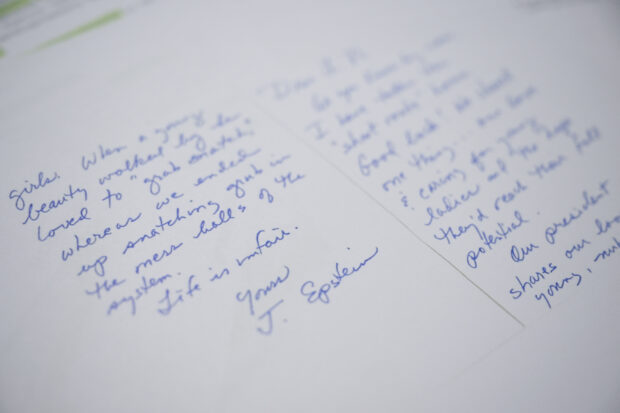 girls. When a young
beauty walked by he
loved to "grab snatch,"
whereas we ended
up snatching grub in
the mess halls of the
system.
Life is unfair.
Yours
J. Epstein
Dear L.N.
As you know by now
I have taken the
"short route" home.
Good luck! We shared
one thing... our love
& caring for young
ladies and the hope
they'd reach their full
potential.
Our president
shares our lo
young, nu